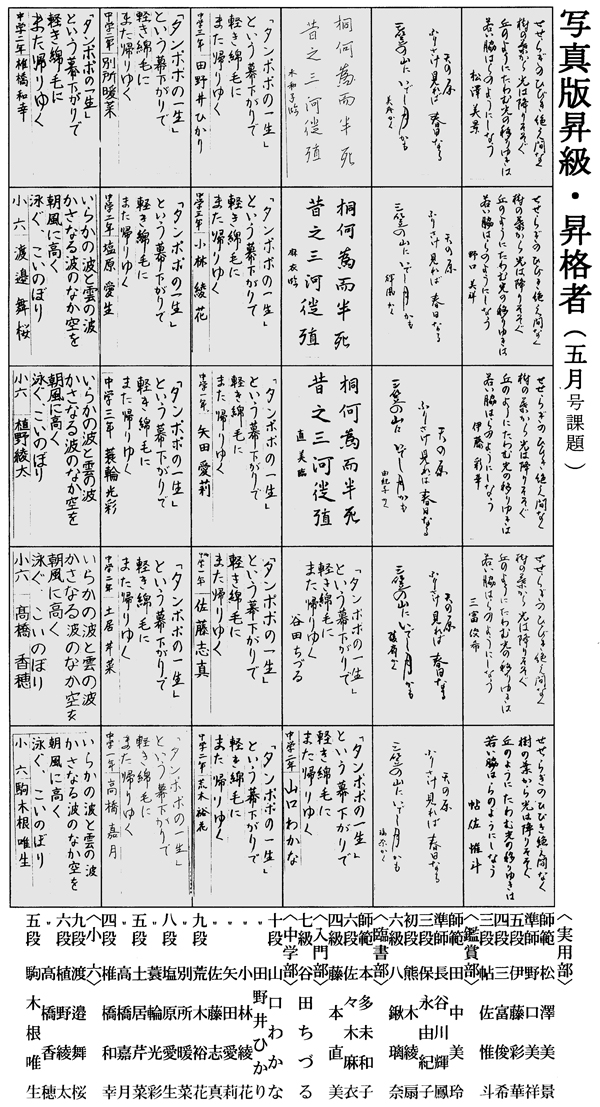 写真版昇級・昇格者（五月号課題）
せせらぎのひびき絶え間なく
樹の葉から光は降りそそぐ
丘のようにたわむ光の移りゆきは
若い脇ばらのようにしなう
松澤美景
せせらぎのひびき絶え間なく
樹の葉から光は降りそそぐ
丘のようにたわむ光の移りゆきは
若い脇ばらのようにしなう
野口美祥
せせらぎのひびき絶え間なく
樹の葉から光は降りそそぐ
丘のようにたわむ光の移りゆきは
若い脇ばらのようにしなう
伊藤彩華
せせらぎのひびき絶え間なく
樹の葉から光は降りそそぐ
丘のようにたわむ光の移りゆきは
若い脇ばらのようにしなう
三富俊希
せせらぎのひびき絶え間なく
樹の葉から光は降りそそぐ
丘のようにたわむ光の移りゆきは
若い脇ばらのようにしなう
帖佐惟斗
天の原
ふりさけ見れば春日なる
三笠の山にいでし月かも
天の原
ふりさけ見れば春日なる
三笠の山にいでし月かも
天の原
ふりさけ見れば春日なる
三笠の山にいでし月かも
天の原
ふりさけ見れば春日なる
三笠の山にいでし月かも
天の原
ふりさけ見れば春日なる
三笠の山にいでし月かも
桐何為而半死
昔之三河徙殖
未和子臨
桐何為而半死
昔之三河徙殖
麻衣臨
桐何為而半死
昔之三河徙殖
直美臨
「タンポポの一生」
という幕下がりで
軽き綿毛に
また帰りゆく
谷田ちづる
「タンポポの一生」
という幕下がりで
軽き綿毛に
また帰りゆく
中学一年 山口わかな
「タンポポの一生」
という幕下がりで
軽き綿毛に
また帰りゆく
中学三年 田野井ひかり
「タンポポの一生」
という幕下がりで
軽き綿毛に
また帰りゆく
中学三年 小林綾花
「タンポポの一生」
という幕下がりで
軽き綿毛に
また帰りゆく
中学一年 矢田愛莉
「タンポポの一生」
という幕下がりで
軽き綿毛に
また帰りゆく
中学一年 佐藤志真
「タンポポの一生」
という幕下がりで
軽き綿毛に
また帰りゆく
中学二年 荒木裕花
「タンポポの一生」
という幕下がりで
軽き綿毛に
また帰りゆく
中学二年 別所暖菜
「タンポポの一生」
という幕下がりで
軽き綿毛に
また帰りゆく
中学二年 塩原愛生
「タンポポの一生」
という幕下がりで
軽き綿毛に
また帰りゆく
中学三年 蓑輪光彩
「タンポポの一生」
という幕下がりで
軽き綿毛に
また帰りゆく
中学二年 土居芹菜
「タンポポの一生」
という幕下がりで
軽き綿毛に
また帰りゆく
中学一年 高橋嘉月
「タンポポの一生」
という幕下がりで
軽き綿毛に
また帰りゆく
中学二年 椎橋和幸
いらかの波と雲の波
かさなる波のなか空を
朝風に高く
泳ぐ、こいのぼり
小六 渡邉舞桜
いらかの波と雲の波
かさなる波のなか空を
朝風に高く
泳ぐ、こいのぼり
小六 植野綾太
いらかの波と雲の波
かさなる波のなか空を
朝風に高く
泳ぐ、こいのぼり
小六 髙橋香穂
いらかの波と雲の波
かさなる波のなか空を
朝風に高く
泳ぐ、こいのぼり
小六 駒木根唯生
〈実用部〉
師範 松澤美景
準師 野口美祥
五段 伊藤彩華
四段 三富俊希
三段 帖佐惟斗
〈鑑賞部〉
師範 田中美玲
準師 長谷川輝鳳
三段 保永由紀子
初段 熊木綾扇
六級 八鍬璃奈
〈臨書部〉
師範 本多未和子
六段 佐々木麻衣
四級 藤本直美
〈入門部〉
七級 谷田ちづる
〈中学部〉
十段 山口わかな
〃 田野井ひかり
〃 小林綾花
〃 矢田愛莉
〃 佐藤志真
九段 荒木裕花
〃 別所暖菜
八段 塩原愛生
〃 蓑輪光彩
五段 土居芹菜
〃 高橋嘉月
四段 椎橋和幸
〈小六〉
九段 渡邉舞桜
六段 植野綾太
〃 高橋香穂
五段 駒木根唯生